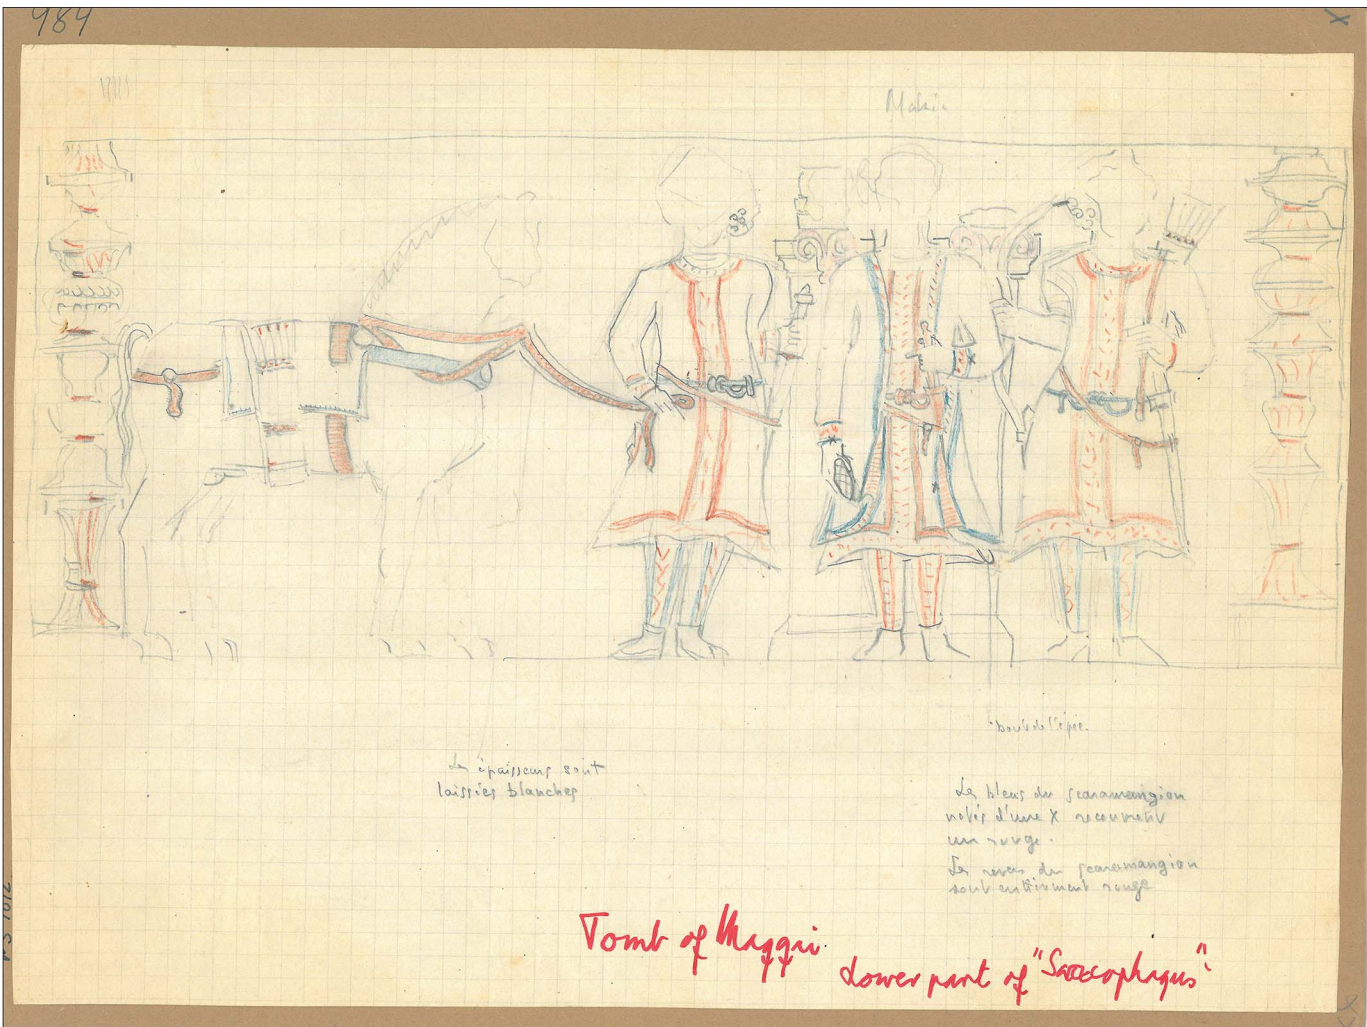 984
X
Makii
bout de l'épée.
Les épaisseurs sont
laissées blanches
Les bleus du scaramangion
notés d'une X recouvrent
un rouge.
Les revers du scaramangion
sont entièrement rouge
Tomb of Maqqai
Lower part of "Sarcophagus".